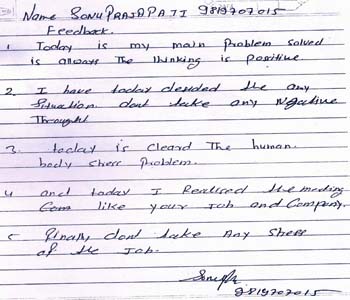 Name SONU PRAJAPATI 9819707015
Feedback.
1 Today is my main Problem solved
is always The thinking is positive
2. I have today decided the any
situation dont take any Negative
Thought
3. today is cleard The human.
body stress Problem.
4 and today I Realised the meeting
Com like your Job and Company.
5 Finally dont take Any stress
of the Job.
9819707015